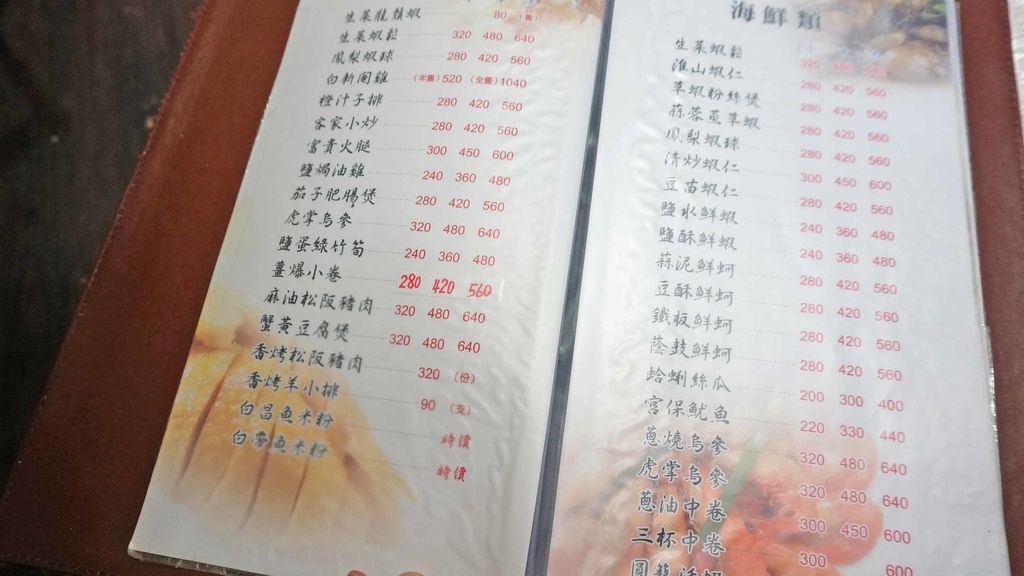 生菜龍鬚蝦 80 (隻)
生菜蝦鬆 320 480 640
鳳梨蝦球 280 420 560
白斬閹雞 (半隻)520 (全隻)1040
橙汁子排 280 420 560
客家小炒 280 420 560
富貴火腿 300 450 600
鹽焗油雞 240 360 480
茄子肥腸煲 280 420 560
虎掌烏參 320 480 640
鹽蛋綠竹筍 240 360 480
薑爆小卷 280 420 560
麻油松阪豬肉 320 480 640
蟹黃豆腐煲 320 480 640
香烤松阪豬肉 320 (份)
香烤羊小排 90 (支)
白昌魚米粉 特價
特價
海鮮類
生菜蝦鬆 320 480 560
淮山蝦仁 280 420 560
草蝦粉絲煲 280 420 560
蒜蓉蒸草蝦 280 420 560
鳳梨蝦球 280 420 560
清炒蝦仁 300 450 600
豆苗蝦仁 280 420 560
鹽水鮮蝦 240 360 480
鹽酥鮮蝦 240 360 480
蒜泥鮮蚵 280 420 560
豆酥鮮蚵 280 420 560
鐵板鮮蚵 280 420 560
蔭鼓鮮蚵 280 420 560
蛤蜊絲瓜 200 300 400
宮保魷魚 220 330 440
蔥燒烏參 320 480 640
虎掌烏參 320 480 640
蔥油中卷 300 450 600
三杯中卷 300 600